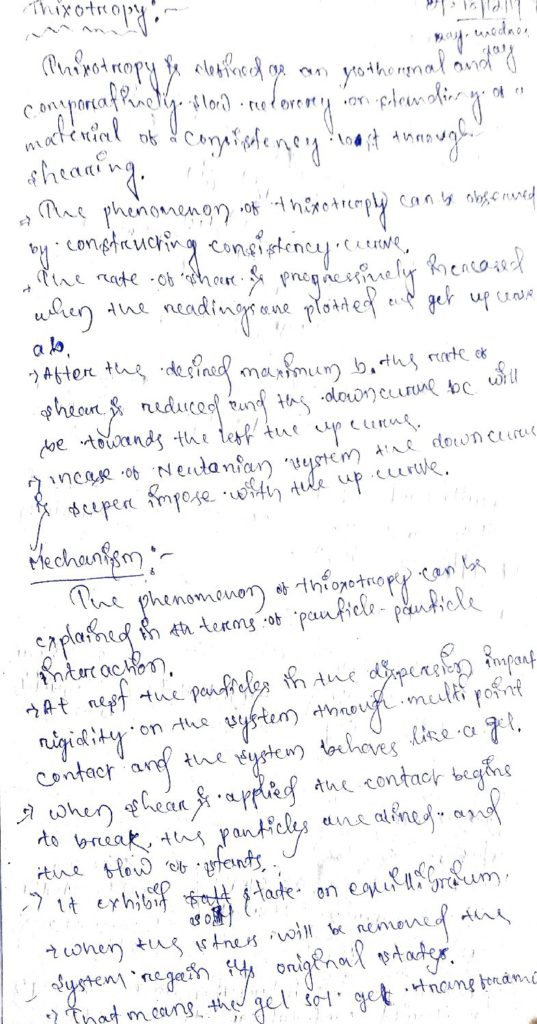 Thixotropy:- 18/12/19
day. wednes
day
Thixotropy is defined as an isothermal and
comparatively slow recovery on standing of a
material of a consistency lost through
shearing.
→ The phenomenon of thixotropy can be observed
by constructing consistency curve.
→ The rate of shear is progressively increased
when the readings are plotted as get up curve
ab.
→ After the desired maximum b. the rate of
shear is reduced and the downcurve bc will
be towards the left the up curve.
→ incase of Neutanian system the down curve
is super impose with the up curve.
Mechanism:-
The phenomenon of thioxotropy can be
explained in th terms of particle-particle
interaction.
→ At rest the particles in the dispersion impart
rigidity on the system through multi point
contact and the system behaves like a gel.
→ when shear is applied the contact begins
to break, the particles are alined and
the flow of starts.
→ It exhibit state on equilibrium.
sol
→ when the stress will be removed the
system regain its original states.
→ That means the gel sol gel